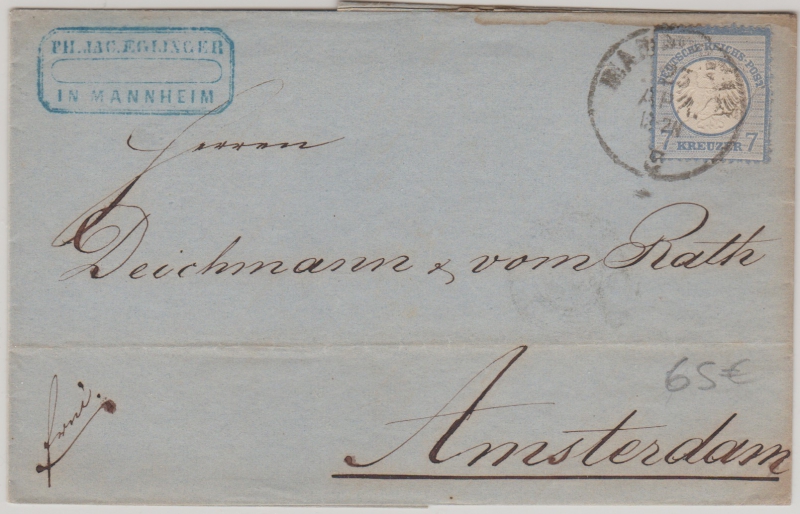 PH. JAC. EGLINGER
IN MANNHEIM
DEUTSCHE REICHS-POST
7 KREUZER 7
Herren
Deichmann & vom Rath
Amsterdam
65€